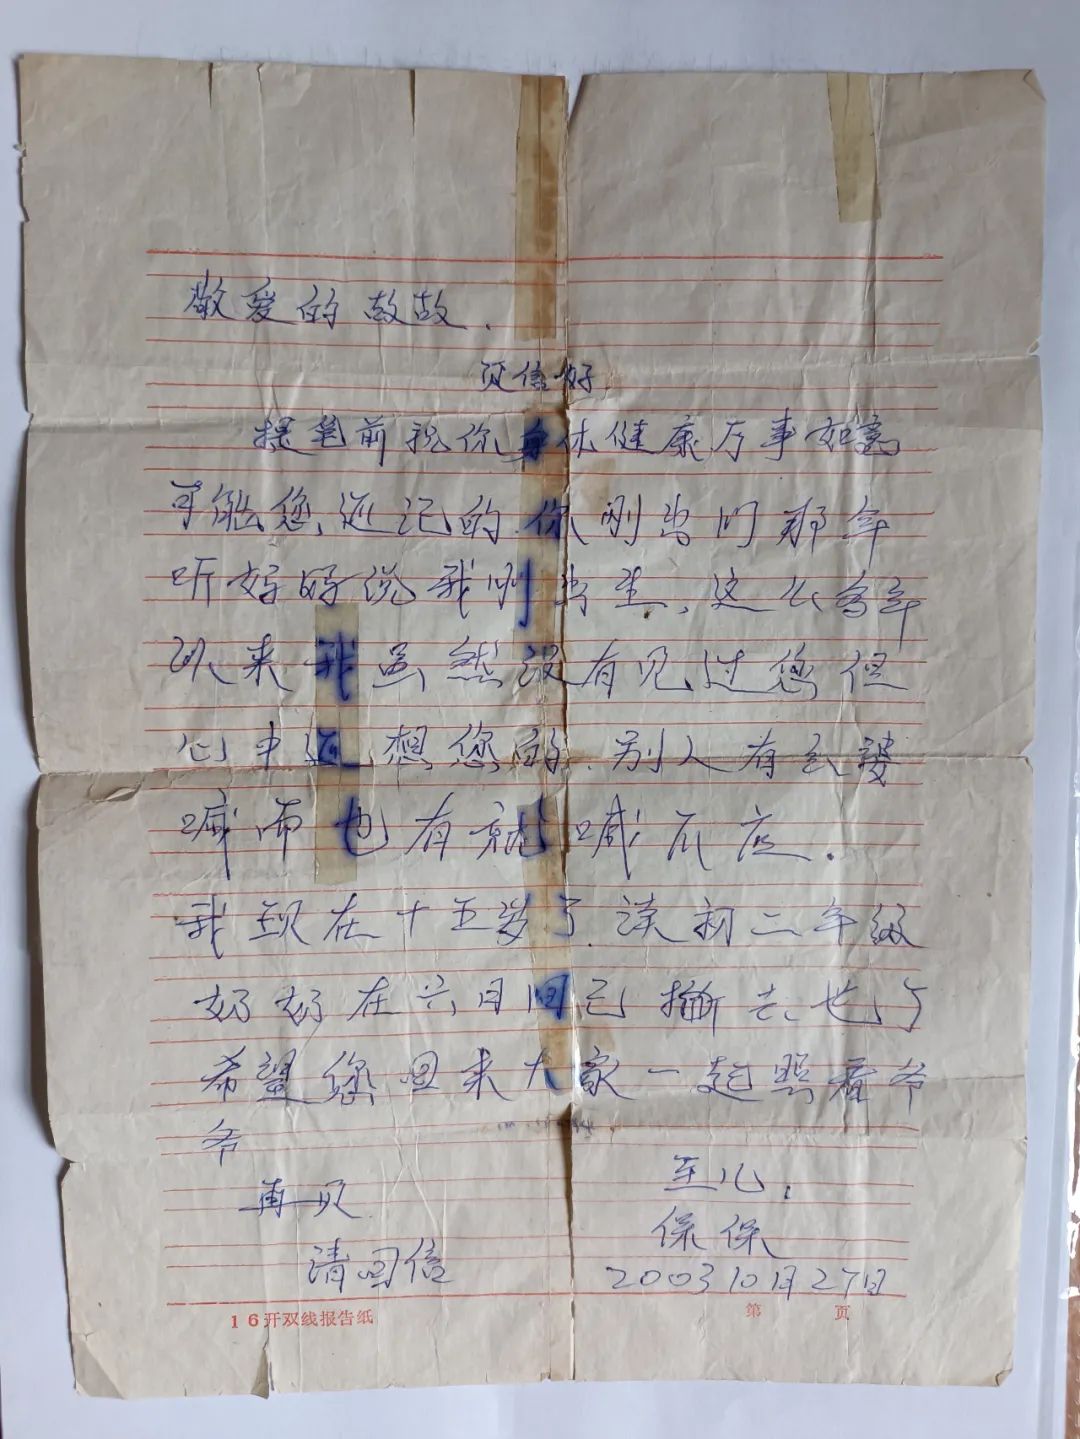 敬爱的故故.
见信好
提笔前祝你身体健康万事如意
可能您还记的.你刚出门那年
听好好说我刚出生,这么多年
以来我虽然没有见过您但
心中还想您的.别人有
喊而也有就喊不应.
我现在十五岁了.读初二年级
奶奶在六月间已去世了
希望您回来大家一起照看爷
爷
再见
至儿:
保保
请回信
2003 10月27日
16开双线报告纸
第 页